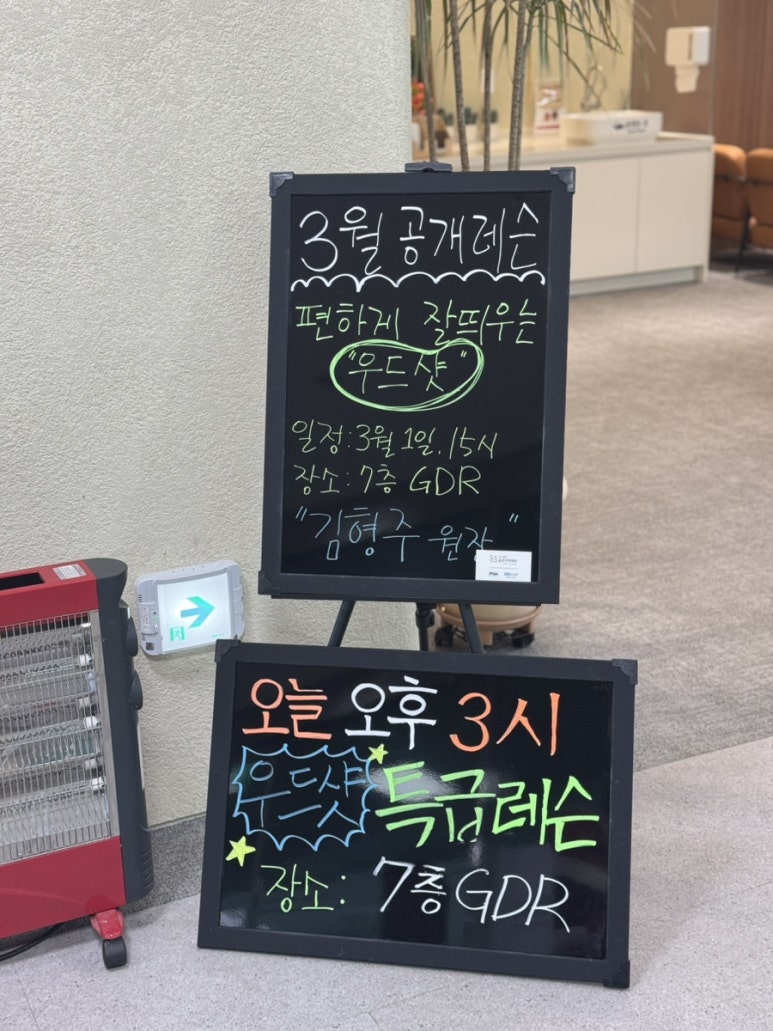 3월 공개레슨
편하게 잘띄우는
"우드샷"
일정:3월 1일. 15시
장소: 7층 GDR
"김형주 원장"
오늘 오후 3시
우드샷 특급레슨
장소: 7층 GDR